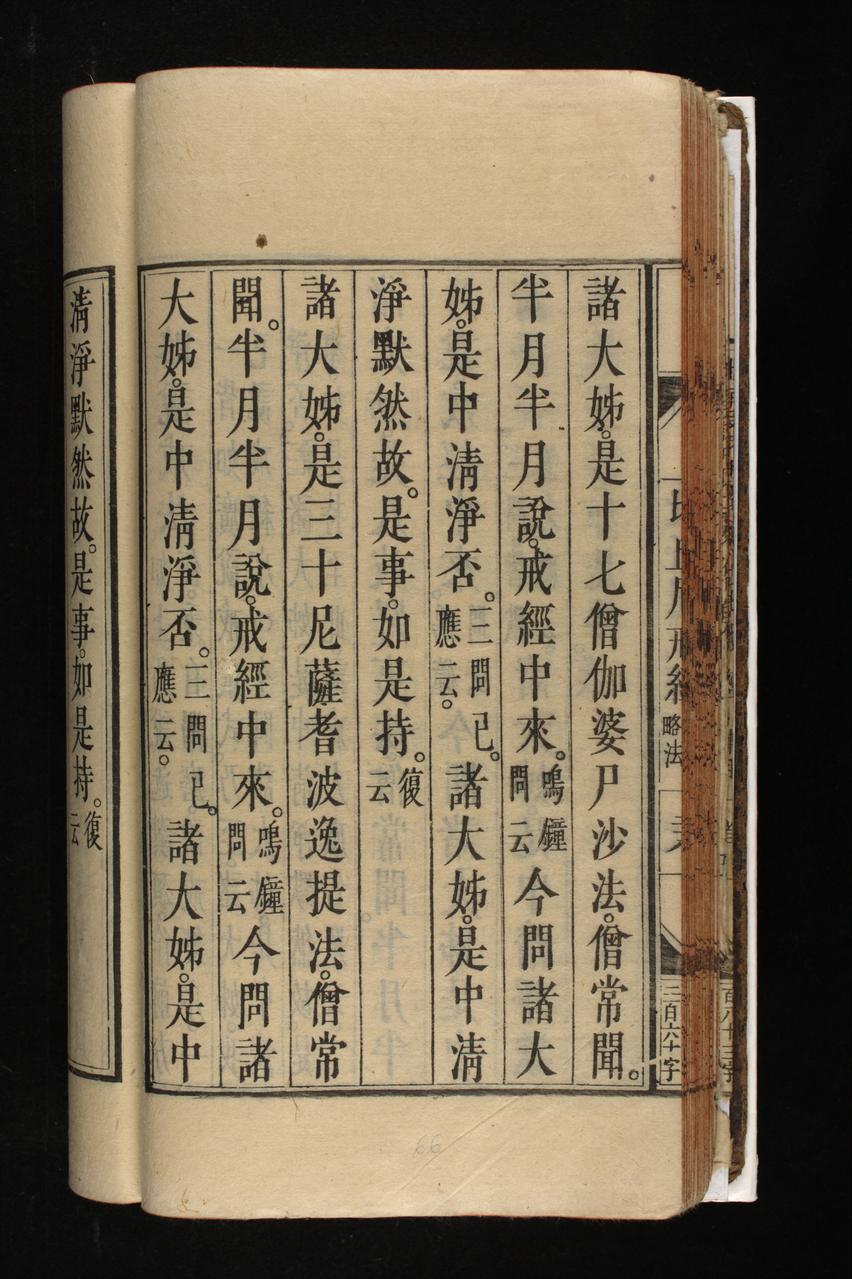 諸大姊。是十七僧伽婆尸沙法。僧常聞。
半月半月說。戒經中來。鳴鐘問云今問諸大
姊。是中清淨否。三問已。應云。諸大姊。是中清
淨默然故。是事。如是持。復云
諸大姊。是三十尼薩耆波逸提法。僧常
聞。半月半月說。戒經中來。鳴鐘問云今問諸
大姊。是中清淨否。三問已。應云。諸大姊。是中
清淨默然故。是事。如是持。復云
略法
三百六十字
66